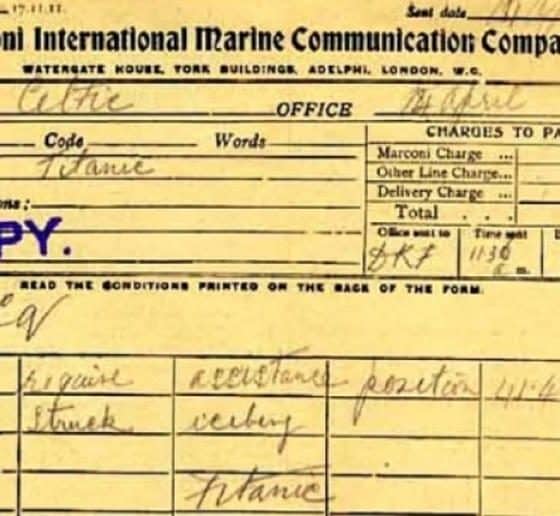 17.11.11. Sent date
ni International Marine Communication Compa
WATERGATE HOUSE, YORK BUILDINGS, ADELPHI, LONDON, W.C.
Celtic OFFICE 14 April
Code Words CHARGES TO PA
Titanic Marconi Charge ...
Other Line Charge...
ns: Delivery Charge ...
PY. Total . . .
Office sent to Time sent
DKF 11.30
m.
READ THE CONDITIONS PRINTED ON THE BACK OF THE FORM.
CQ
require assistance position 41.4
struck iceberg
Titanic